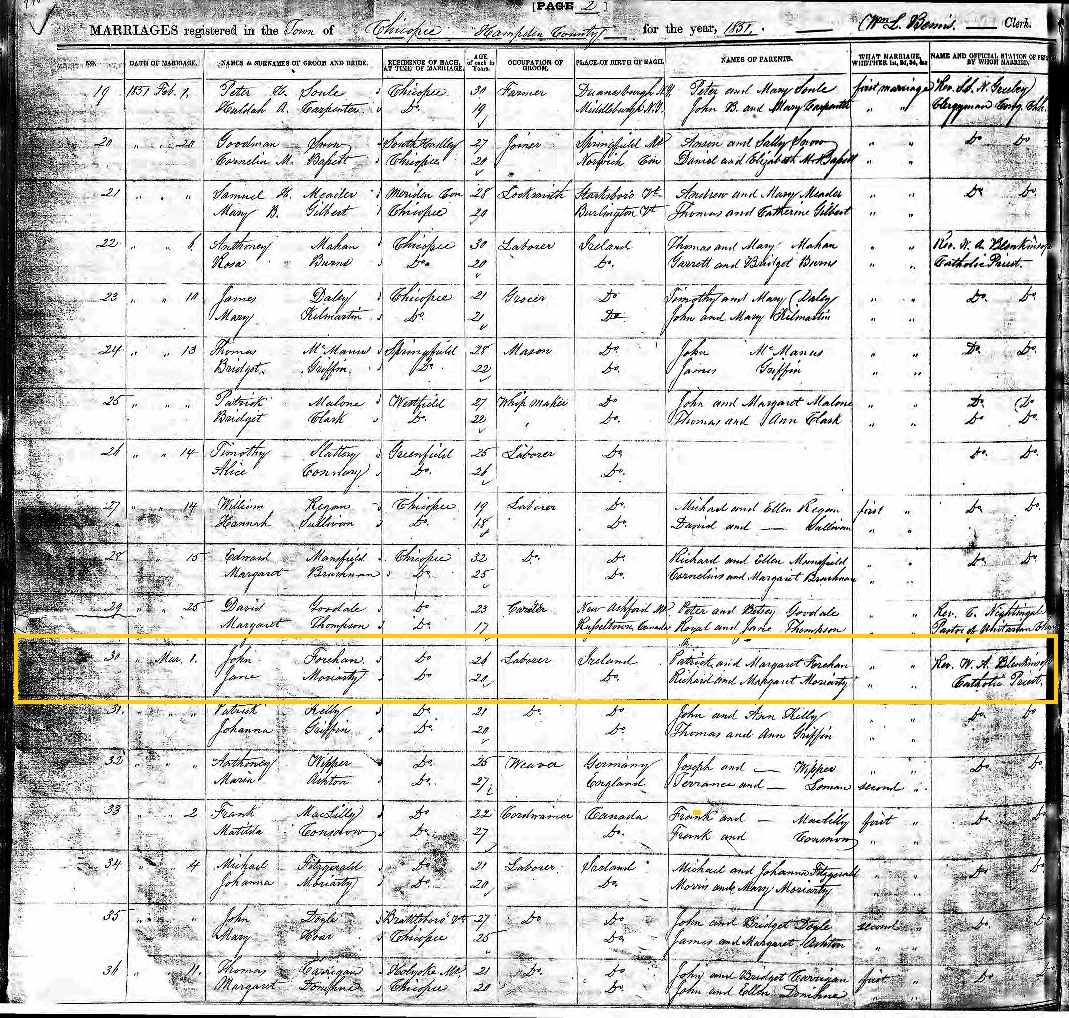 [PAGE 2]
MARRIAGES registered in the Town of Chicopee Hampden County for the year, 1851. Wm L. Bemis Clerk.
NO. DATE OF MARRIAGE. NAMES & SURNAMES OF GROOM AND BRIDE. RESIDENCE OF EACH, AT TIME OF MARRIAGE. AGE of each in Years. OCCUPATION OF GROOM. PLACE OF BIRTH OF EACH. NAMES OF PARENTS. WHAT MARRIAGE, WHETHER 1st, 2d, 3d, &c NAME AND OFFICIAL STATION OF BY WHOM MARRIED.
19 1851 Feb. 1. Peter Soule Chicopee 30 Farmer Duanesburgh N.Y. Peter and Mary Soule first marriage Rev.
Huldah A. Carpenter Do 19 Middleburgh N.Y. John B. and Mary Carpenter " " Clergyman
20 " " 20 Goodman Snow South Hadley 27 Joiner Springfield Ms Anson and Sally Snow " " Do Do
Cornelia M. Chicopee 20 Norwich Con David and Elizabeth " "
21 " " " Samuel H. Meader Meriden Con 28 Locksmith Starksboro Vt. Andrew and Mary Meader " " Do Do
Mary B. Gilbert Chicopee 20 Burlington Vt Thomas and Catherine Gilbert " "
22 " " 6 Anthoney Mahan Chicopee 30 Laborer Ireland Thomas and Mary Mahan " " Rev. W. A. Blenkinsop
Rosa Burns Do. 20 Do. Garrett and Bridget Burns " " Catholic Priest.
23 " " 10 James Daley Chicopee 21 Grocer Do Timothy and Mary Daley " " Do. Do.
Mary Kilmartin Do. 21 Do John and Mary Kilmartin " "
24 " " 13 Thomas McManus Springfield 28 Mason Do. John McManus " " Do. Do.
Bridget. Griffin Do. 22 Do. James Griffin " "
25 " " " Patrick Malone Westfield 27 Whip maker Do John and Margaret Malone " " Do. Do
Bridget Clark Do. 22 Do. Thomas and Ann Clark " " Do Do
26 " " 14 Timothy Slattery Greenfield 25 Laborer Do. Do. Do.
Alice Do. 26 Do.
27 " " 14 William Regan Chicopee 19 Laborer Do. Michael and Ellen Regan first " Do. Do.
Hannah Sullivan Do. 18 Do. David and — Sullivan " "
28 " " 15 Edward Mansfield Chicopee 32 Do. Do Richard and Ellen Mansfield " " Do Do
Margaret Do. 25 Do. Cornelius and Margaret " "
29 " " 25 David Goodale Do 23 New Ashford Ms Peter and Betsey Goodale " " Rev. C. Nightingale
Margaret Thompson Do. 17 Canada Royal and Jane Thompson " " Pastor of Unitarian
30 " Mar. 1. John Forehan Do 26 Laborer Ireland Patrick and Margaret Forehan " " Rev. W. A. Blenkinsop
Jane Moriarty Do. 20 Do. Richard and Margaret Moriarty " " Catholic Priest.
31. " " " Patrick Kelly Do. 21 Do. Do. John and Ann Kelly " " Do. Do
Johanna Griffin Do. 20 Do. Thomas and Ann Griffin " "
32 " " " Anthoney Wipper Do. 25 Weaver Germany Joseph and — Wipper " " Do. Do
Maria Ashton Do. 27 England Terrance and — second "
33 " " 2 Frank Do 22 Cordwainer Canada Frank and — first " Do. Do
Matilda Do. 27 Do. Frank and " "
34 " " 4 Michael Fitzgerald Do 21 Laborer Ireland Michael and Johanna Fitzgerald " " Do. Do
Johanna Moriarty Do. 20 Do. Morris and Mary Moriarty " "
35 " " " John Doyle Brattleboro' Vt 27 Do Do John and Bridget Doyle second " Do. Do
Mary Hoar Chicopee 25 Do. James and Margaret Ashton " "
36 " 11. Thomas Carrigan Holyoke Ms. 21 Do. Do John and Bridget Carrigan first " Do Do
Margaret Chicopee 20 Do. John and Ellen " "